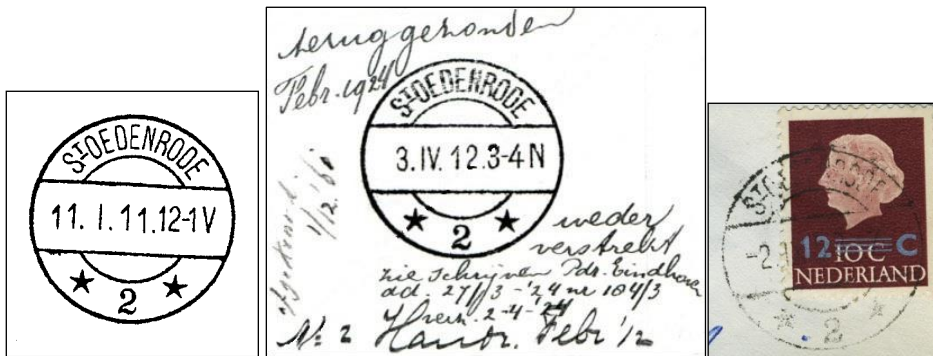 ST OEDENRODE
11. I. 11.12-1V
2
teruggezonden
Febr. 1924
ST OEDENRODE
3.IV.12.3-4N
2
1/12.'60
weder
verstrekt
zie schrijven Pdr. Eindhoven
dd. 27/3-'24 nr 104/3
2-4-'24
No 2 Febr '12
ST OEDENRODE
-2.
2
12 C
10C
NEDERLAND